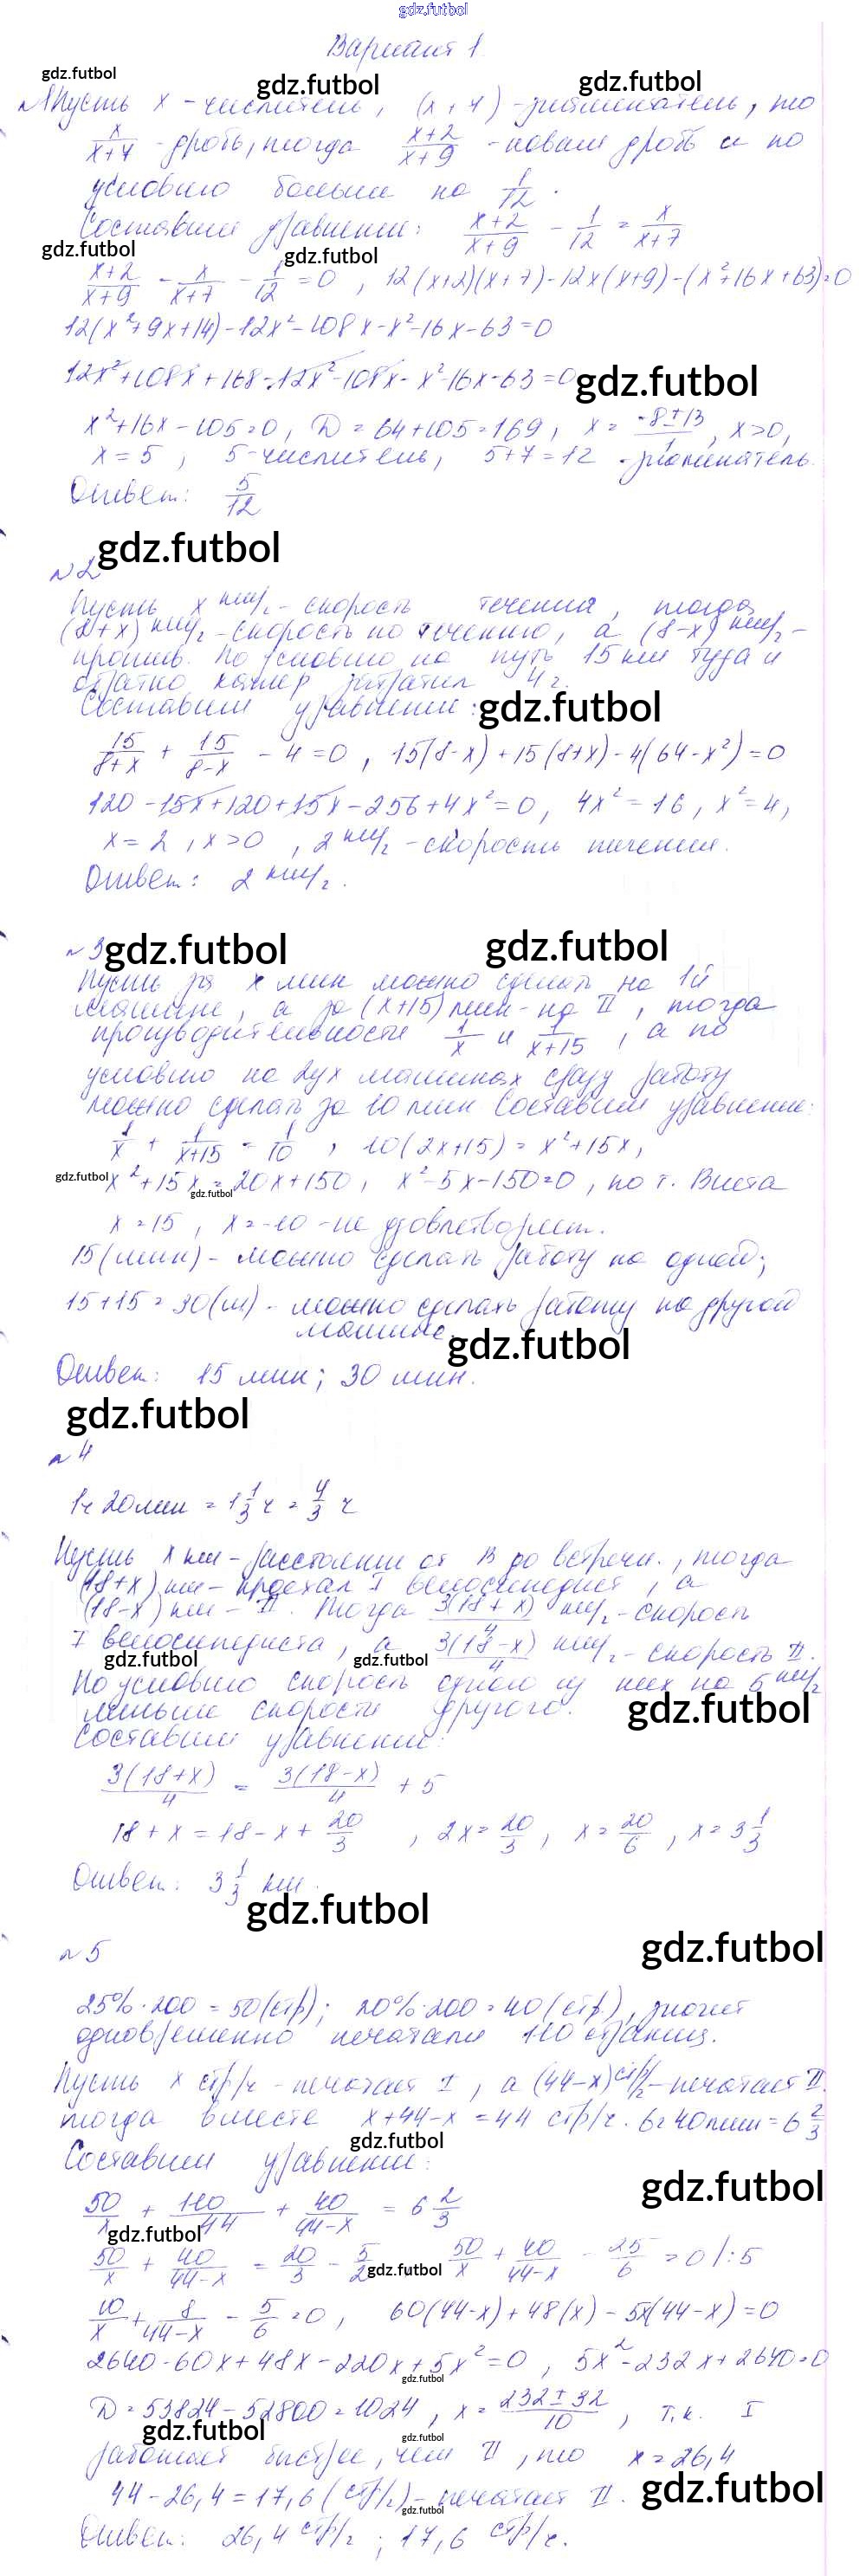 gdz.futbol
Вариант 1
gdz.futbol gdz.futbol gdz.futbol
№1 Пусть x - числитель, (x+7) - знаменатель, то
x/(x+7) - дробь, тогда (x+2)/(x+9) - новая дробь и по
условию больше на 1/12.
Составим уравнение: (x+2)/(x+9) - 1/12 = x/(x+7)
gdz.futbol gdz.futbol
(x+2)/(x+9) - x/(x+7) - 1/12 = 0, 12(x+2)(x+7)-12x(x+9)-(x²+16x+63)=0
12(x²+9x+14)-12x²-108x-x²-16x-63=0
12x²+108x+168-12x²-108x-x²-16x-63=0
gdz.futbol
x²+16x-105=0, D=64+105=169, x=(-8±13)/1, x>0,
x=5, 5-числитель, 5+7=12 - знаменатель.
Ответ: 5/12
gdz.futbol
№2
Пусть x км/ч - скорость течения, тогда
(8+x) км/ч - скорость по течению, а (8-x) км/ч -
против. По условию на путь 15 км туда и
обратно катер затратил 4ч.
Составим уравнение:
gdz.futbol
15/(8+x) + 15/(8-x) - 4=0, 15(8-x)+15(8+x)-4(64-x²)=0
120-15x+120+15x-256+4x²=0, 4x²=16, x²=4,
x=2, x>0, 2 км/ч - скорость течения.
Ответ: 2 км/ч.
№3
gdz.futbol gdz.futbol
Пусть за x мин можно сделать на 1й
машине, а за (x+15) мин - на II, тогда
производительности 1/x и 1/(x+15), а по
условию на 2ух машинах сразу работу
можно сделать за 10 мин. Составим уравнение:
1/x + 1/(x+15) = 1/10, 10(2x+15)=x²+15x,
gdz.futbol gdz.futbol
x²+15x=20x+150, x²-5x-150=0, по т. Виета
x=15, x=-10 - не удовлетворяет.
15(мин) - можно сделать работу на одной;
15+15=30(м) - можно сделать работу на другой
машине.
gdz.futbol
Ответ: 15 мин; 30 мин.
gdz.futbol
№4
1ч 20мин = 1 1/3 ч = 4/3 ч
Пусть x км - расстояние от B до встречи, тогда
(18+x) км - проехал I велосипедист, а
(18-x) км - II. Тогда 3(18+x)/4 км/ч - скорость
I велосипедиста, а 3(18-x)/4 км/ч - скорость II.
gdz.futbol gdz.futbol
По условию скорость одного из них на 5 км/ч
меньше скорости другого.
gdz.futbol
Составим уравнение:
3(18+x)/4 = 3(18-x)/4 + 5
18+x=18-x+20/3, 2x=20/3, x=20/6, x=3 1/3
Ответ: 3 1/3 км.
gdz.futbol
№5
gdz.futbol
25%·200=50(стр); 20%·200=40(стр), значит
одновременно печатали 110 страниц.
Пусть x стр/ч - печатает I, а (44-x) стр/ч - печатает II,
тогда вместе x+44-x=44 стр/ч. 6ч 40мин=6 2/3
gdz.futbol
Составим уравнение:
gdz.futbol
50/x + 110/44 + 40/(44-x) = 6 2/3
gdz.futbol
50/x + 40/(44-x) = 20/3 - 5/2, 50/x + 40/(44-x) - 25/6 =0 |:5
gdz.futbol
10/x + 8/(44-x) - 5/6 =0, 60(44-x)+48(x)-5x(44-x)=0
2640-60x+48x-220x+5x²=0, 5x²-232x+2640=0
gdz.futbol
D=53824-52800=1024, x=(232±32)/10, т.к. I
gdz.futbol gdz.futbol
работает быстрее, чем II, то x=26,4
gdz.futbol
44-26,4=17,6 (стр/ч) - печатает II.
gdz.futbol
Ответ: 26,4 стр/ч; 17,6 стр/ч.